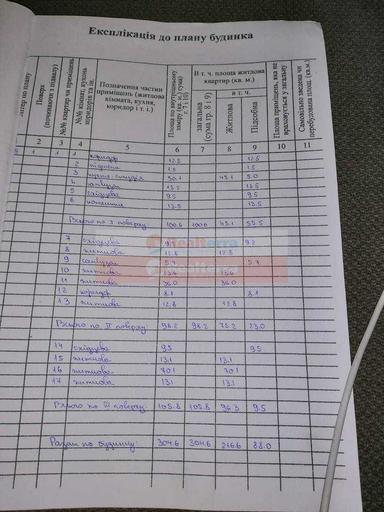 Експлікація до плану будинка
Поверх (починаючи з підвалу)
№№ квартир чи приміщень
№№ кімнат, кухонь коридорів та ін.
Позначення частин приміщень (житлова кімната, кухня, коридор і т. і.)
II т. ч. площа житлова квартир (кв. м.)
загальна (сума гр. 8 і 9)
в т. ч.
Житлова
Підсобна
Площа приміщень, яка не враховується у загальну
Самовільно зведена чи перебудована площа (кв.м.)
2 3 4 5 6 7 8 9 10 11
1 1 1 коридор 12.5 12.5
2
3 50.1 45.1 5.0
4 санвузол 13.5 13.5
5 східцева 9.5 9.5
6 котельня 13.5 13.5
Всього по I поверху 100.6 100.6 45.1 55.5
7 східцева 9.2 9.2
8 житлова 12.8 12.8
9 санвузол 5.7 5.7
10 житлова 13.4
11 житлова 36.0 36.0
12 коридор 8.1 8.1
13 житлова 12.8 12.8
Realterra
Всього по II поверху 98.2 98.2 75.2 23.0
14 східцева 9.5 9.5
15 житлова 13.1 13.1
16 житлова 70.1 70.1
17 житлова 13.1 13.1
Всього по III поверху 105.8 105.8 96.3 9.5
Разом по будинку: 304.6 304.6 216.6 88.0